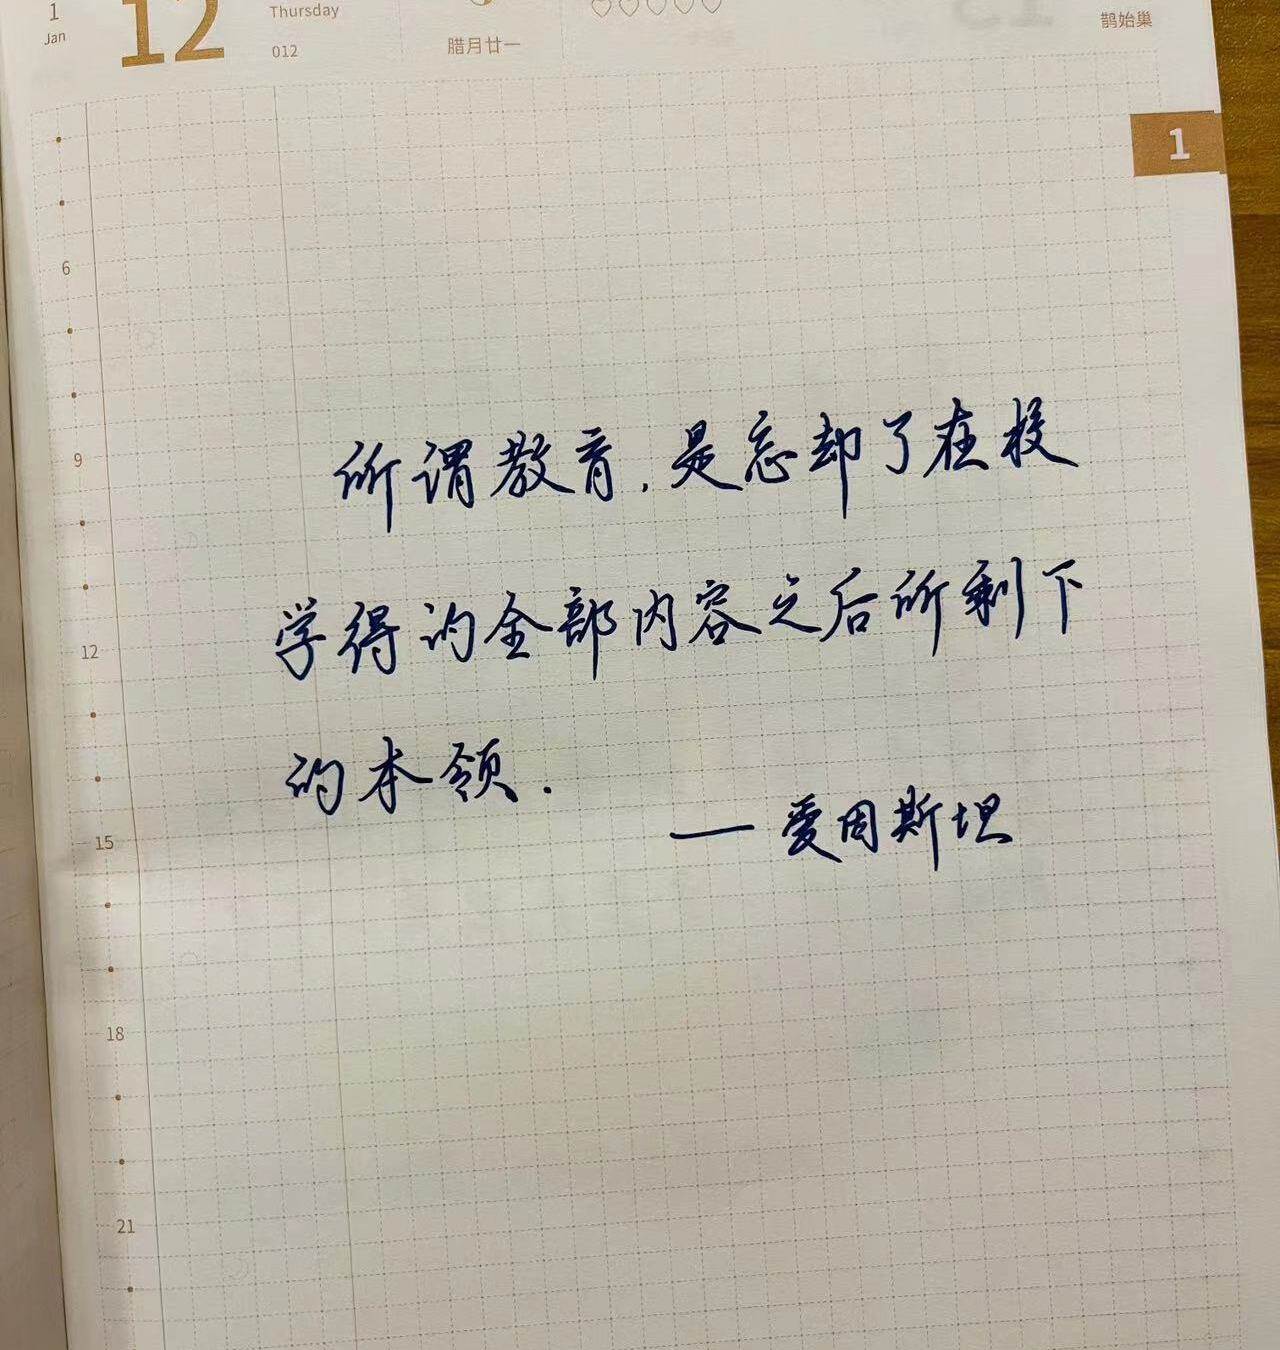 1
Jan
12
Thursday
012
腊月廿一
鹊始巢
1
6
9
12
15
18
21
所谓教育.是忘却了在校
学得的全部内容之后所剩下
的本领.
——爱因斯坦